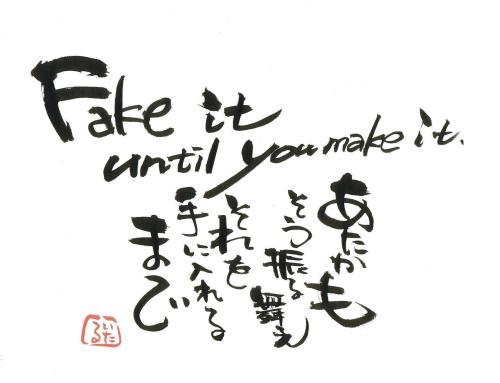 Fake it
until you make it.
あたかも
そう振る舞え
それを
手に入れる
まで
いたる